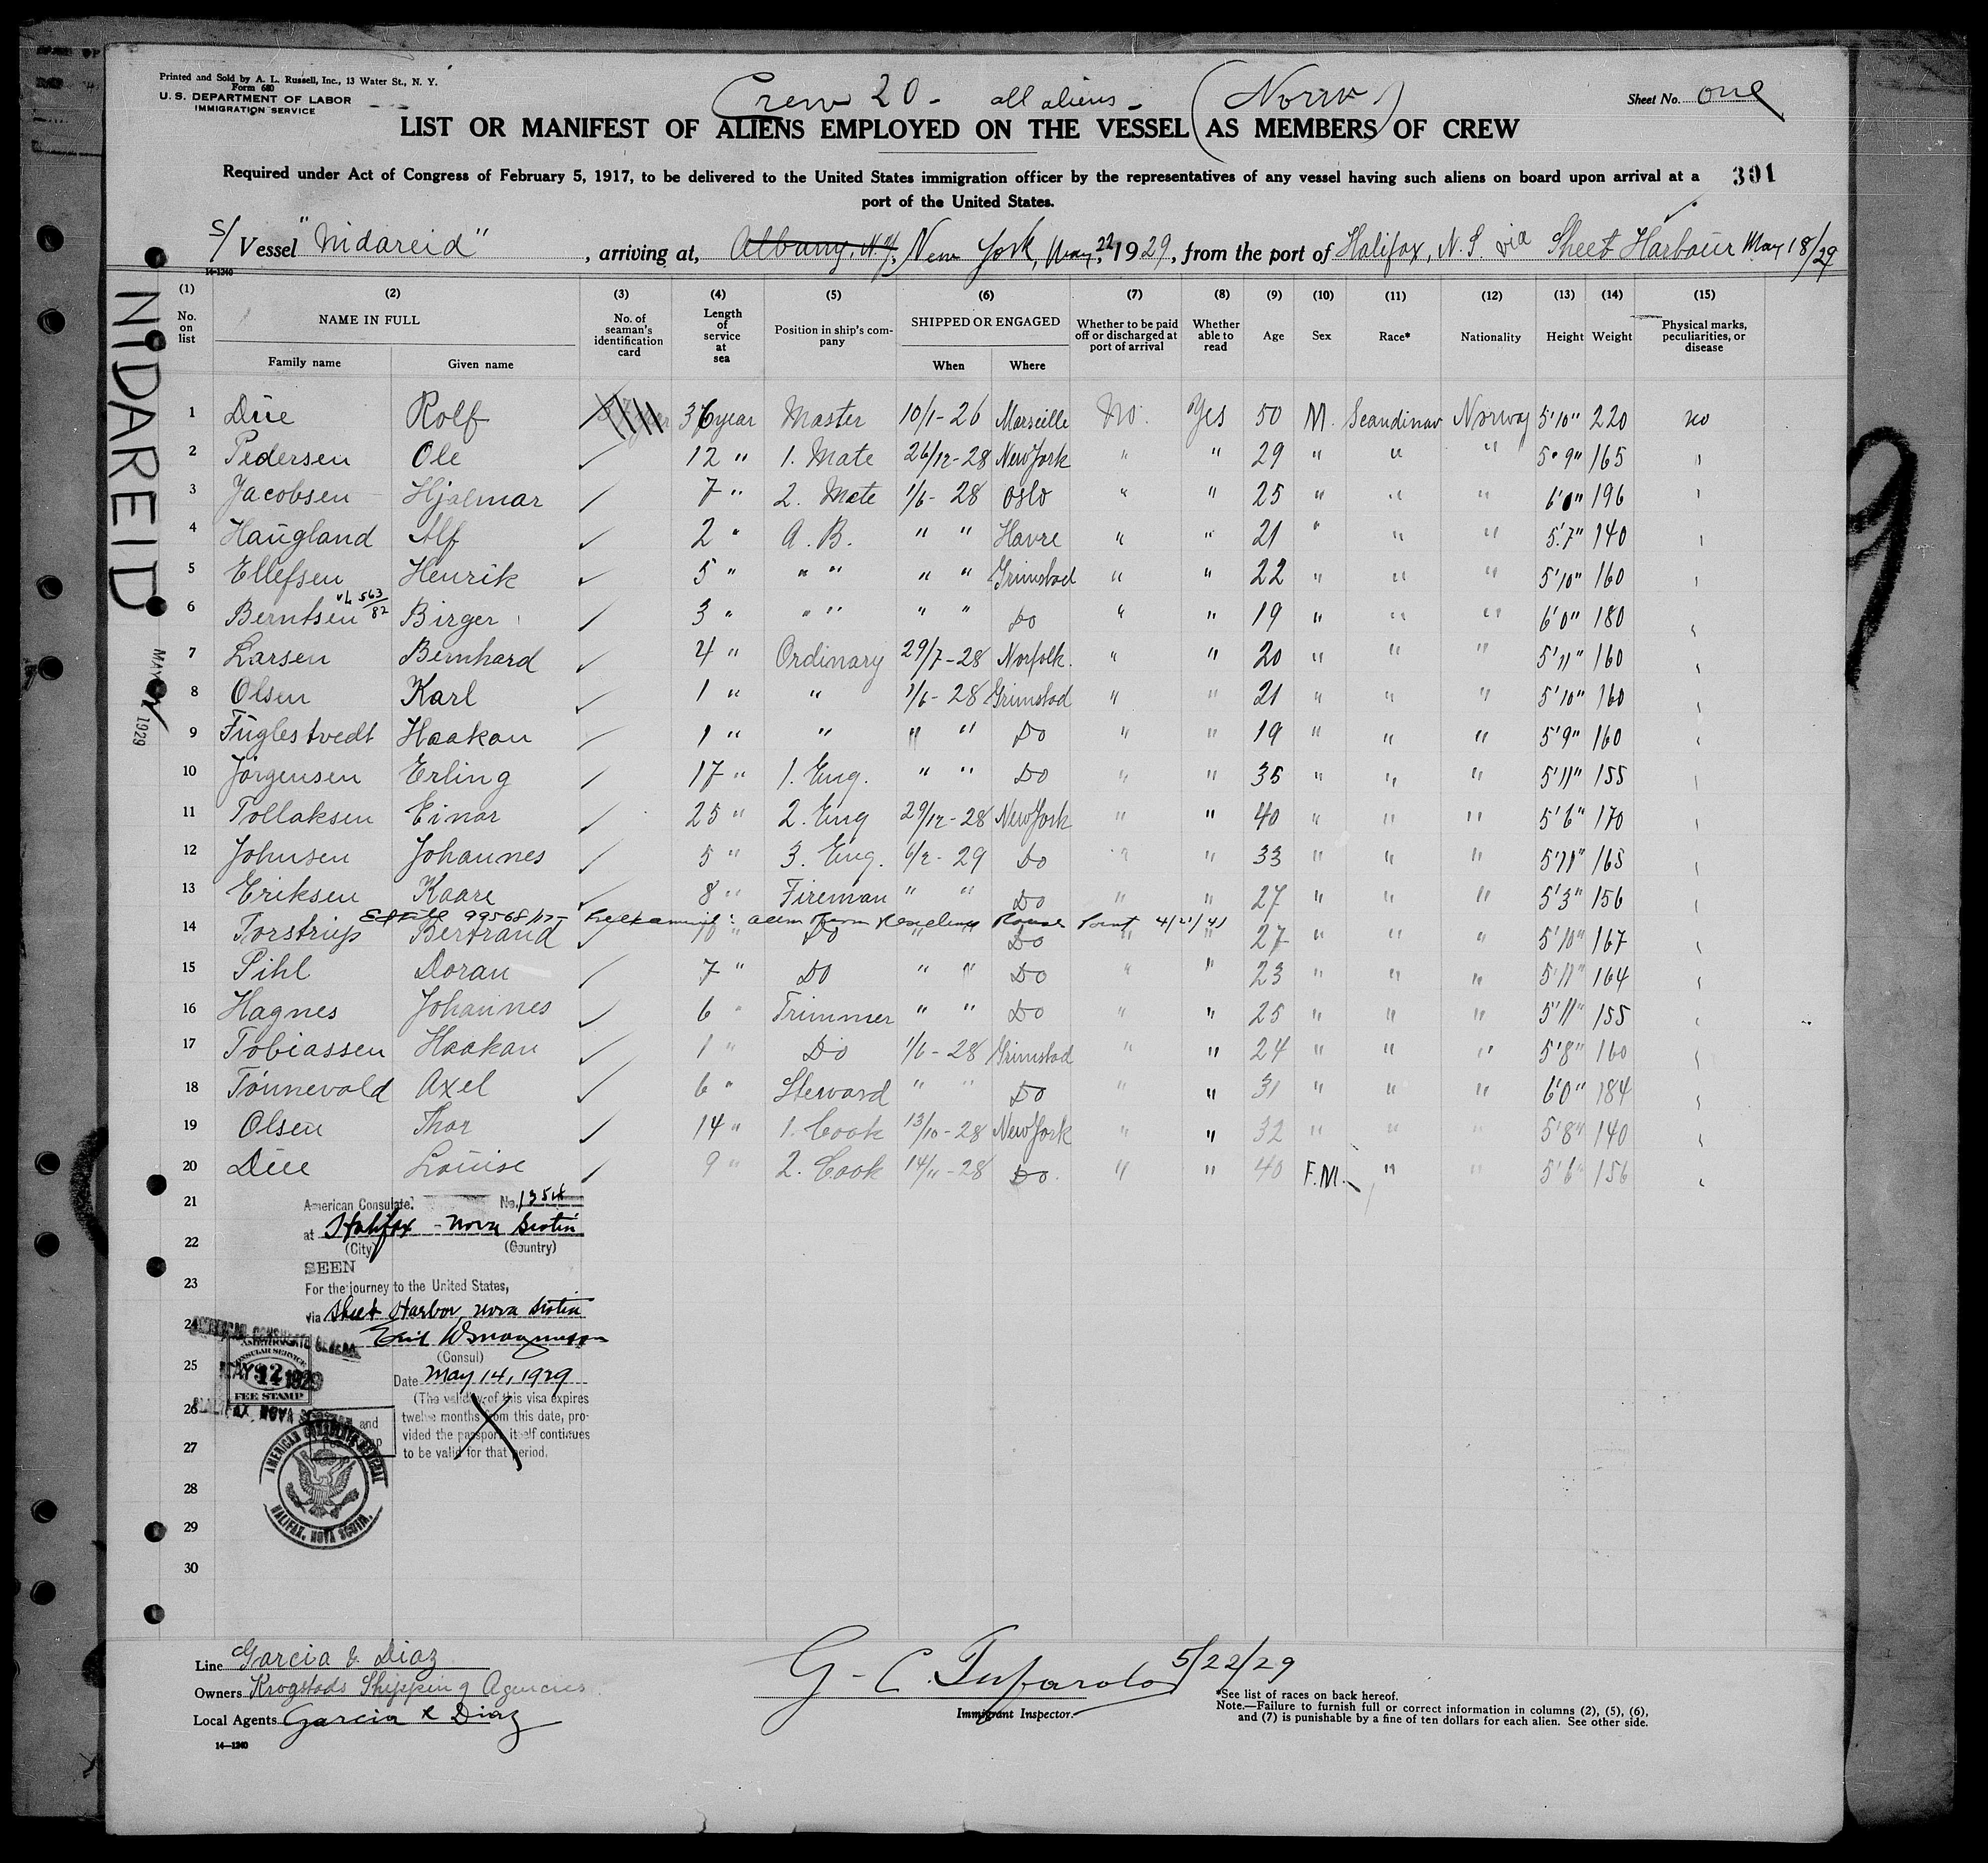 Printed and Sold by A. L. Russell, Inc., 13 Water St., N. Y.
Form 680
U. S. DEPARTMENT OF LABOR
IMMIGRATION SERVICE
Crew 20 - all aliens - (Norw.)
Sheet No. one
LIST OR MANIFEST OF ALIENS EMPLOYED ON THE VESSEL AS MEMBERS OF CREW
Required under Act of Congress of February 5, 1917, to be delivered to the United States immigration officer by the representatives of any vessel having such aliens on board upon arrival at a
port of the United States.
301
S/ Vessel "Nidareid", arriving at, Albany, N.Y. New York, May 22, 1929, from the port of Halifax, N.S. via Sheet Harbour May 18/29
14-1240
NIDAREID
MAY 1929
(1) (2) (3) (4) (5) (6) (7) (8) (9) (10) (11) (12) (13) (14) (15)
No. on list
NAME IN FULL
Family name Given name
No. of seaman's identification card
Length of service at sea
Position in ship's company
SHIPPED OR ENGAGED
When Where
Whether to be paid off or discharged at port of arrival
Whether able to read
Age Sex Race* Nationality Height Weight
Physical marks, peculiarities, or disease
1 Düe Rolf 36 year Master 10/1-26 Marseille No. Yes 50 M. Scandinav Norway 5'10" 220 no
2 Pedersen Ole 12 " 1. Mate 26/12-28 New York " " 29 " " " 5'9" 165 "
3 Jacobsen Hjalmar 7 " 2. Mate 1/6-28 Oslo " " 25 " " " 6'0" 196 "
4 Haugland Alf 2 " A. B. " " Havre " " 21 " " " 5'7" 140 "
5 Ellefsen Henrik 5 " " " " " Grimstad " " 22 " " " 5'10" 160 "
vL 563/82
6 Berntsen Birger 3 " " " " " Do " " 19 " " " 6'0" 180 "
7 Larsen Bernhard 4 " Ordinary 29/7-28 Norfolk. " " 20 " " " 5'11" 160 "
8 Olsen Karl 1 " " 1/6-28 Grimstad " " 21 " " " 5'10" 160 "
9 Fuglestvedt Haakon 1 " " " " Do " " 19 " " " 5'9" 160 "
10 Jörgensen Erling 17 " 1. Eng. " " Do " " 35 " " " 5'11" 155 "
11 Tollaksen Einar 25 " 2. Eng 29/12-28 New York " " 40 " " " 5'6" 170 "
12 Johnsen Johannes 5 " 3. Eng. 6/2-29 Do " " 33 " " " 5'11" 165 "
13 Eriksen Kaare 8 " Fireman " " Do " " 27 " " " 5'3" 156 "
99568/ 4/21/41
14 Torstrup Bertrand 10 " Do " " Do " " 27 " " " 5'10" 167 "
15 Pihl Doran 7 " Do " " Do " " 23 " " " 5'11" 164 "
16 Hagnes Johannes 6 " Trimmer " " Do " " 25 " " " 5'11" 155 "
17 Tobiassen Haakon 1 " Do 1/6-28 Grimstad " " 24 " " " 5'8" 160 "
18 Tönnevold Axel 6 " Steward " " Do " " 31 " " " 6'0" 184 "
19 Olsen Thor 14 " 1. Cook 13/10-28 New York " " 32 " " " 5'8" 140 "
20 Düe Louise 9 " 2. Cook 14/11-28 Do. " " 40 F.M. " " 5'6" 156 "
21
22
23
24
25
26
27
28
29
30
American Consulate.
at Halifax - Nova Scotia
(City) (Country)
SEEN
For the journey to the United States,
via Sheet Harbor Nova Scotia
(Consul)
Date May 14, 1929
(The validity of this visa expires
twelve months from this date, pro-
vided the passport itself continues
to be valid for that period.
AMERICAN CONSULATE GENERAL
MAY 14 1929
FEE STAMP
HALIFAX, NOVA SCOTIA
AMERICAN CONSULATE GENERAL
HALIFAX, NOVA SCOTIA.
Line Garcia & Diaz
Owners Krogstads Shipping Agencies
Local Agents Garcia & Diaz
14-1240
G. C. Tufarolo 5/22/29
Immigrant Inspector.
*See list of races on back hereof.
Note.—Failure to furnish full or correct information in columns (2), (5), (6),
and (7) is punishable by a fine of ten dollars for each alien. See other side.